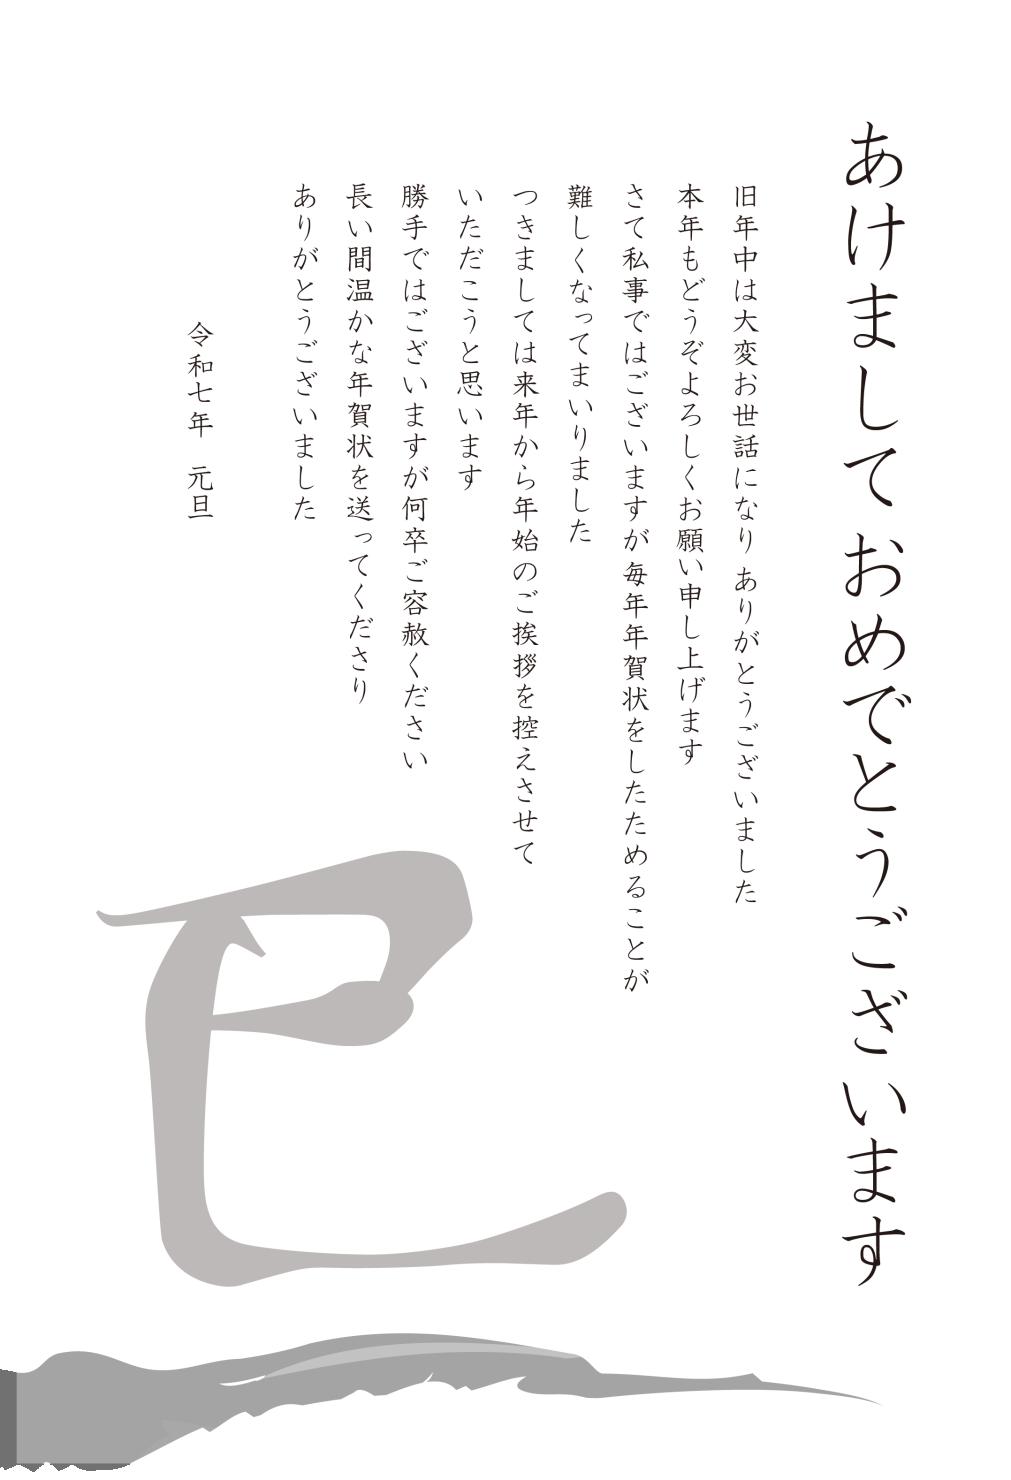 あけまして おめでとうございます
旧年中は大変お世話になり ありがとうございました
本年もどうぞよろしくお願い申し上げます
さて私事ではございますが 毎年年賀状をしたためることが
難しくなってまいりました
つきましては来年から年始のご挨拶を控えさせて
いただこうと思います
勝手ではございますが何卒ご容赦ください
長い間温かな年賀状を送ってくださり
ありがとうございました
令和七年 元旦
巳